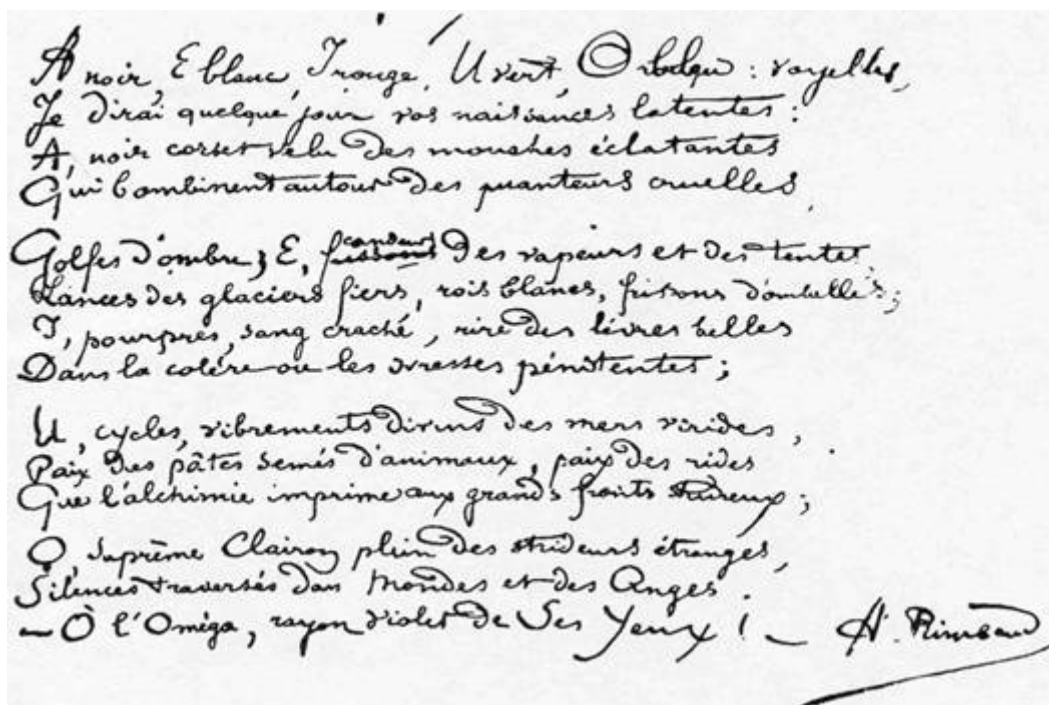 A noir, E blanc, I rouge, U vert, O bleu : voyelles,
Je dirai quelque jour vos naissances latentes :
A, noir corset velu des mouches éclatantes
Qui bombinent autour des puanteurs cruelles,
Golfes d'ombre ; E, frissons candeurs des vapeurs et des tentes,
Lances des glaciers fiers, rois blancs, frissons d'ombelles ;
I, pourpres, sang craché, rire des lèvres belles
Dans la colère ou les ivresses pénitentes ;
U, cycles, vibrements divins des mers virides,
Paix des pâtis semés d'animaux, paix des rides
Que l'alchimie imprime aux grands fronts studieux ;
O, suprême Clairon plein des strideurs étranges,
Silences traversés des Mondes et des Anges :
— O l'Oméga, rayon violet de Ses Yeux ! — A. Rimbaud